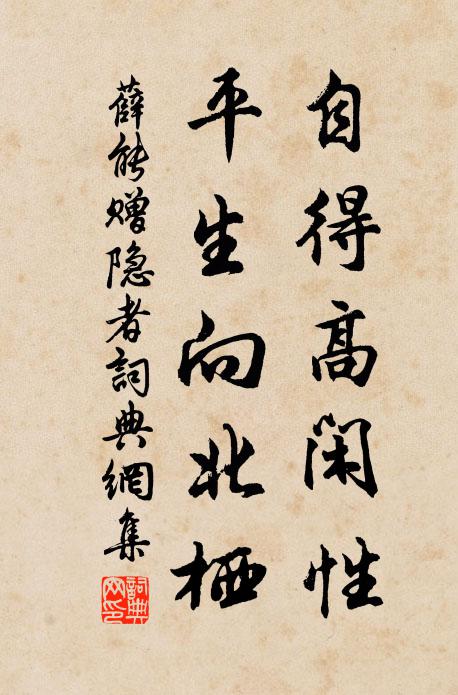 自得高闲性
平生向北栖
薛能赠隐者詞典網集
詞典
网印